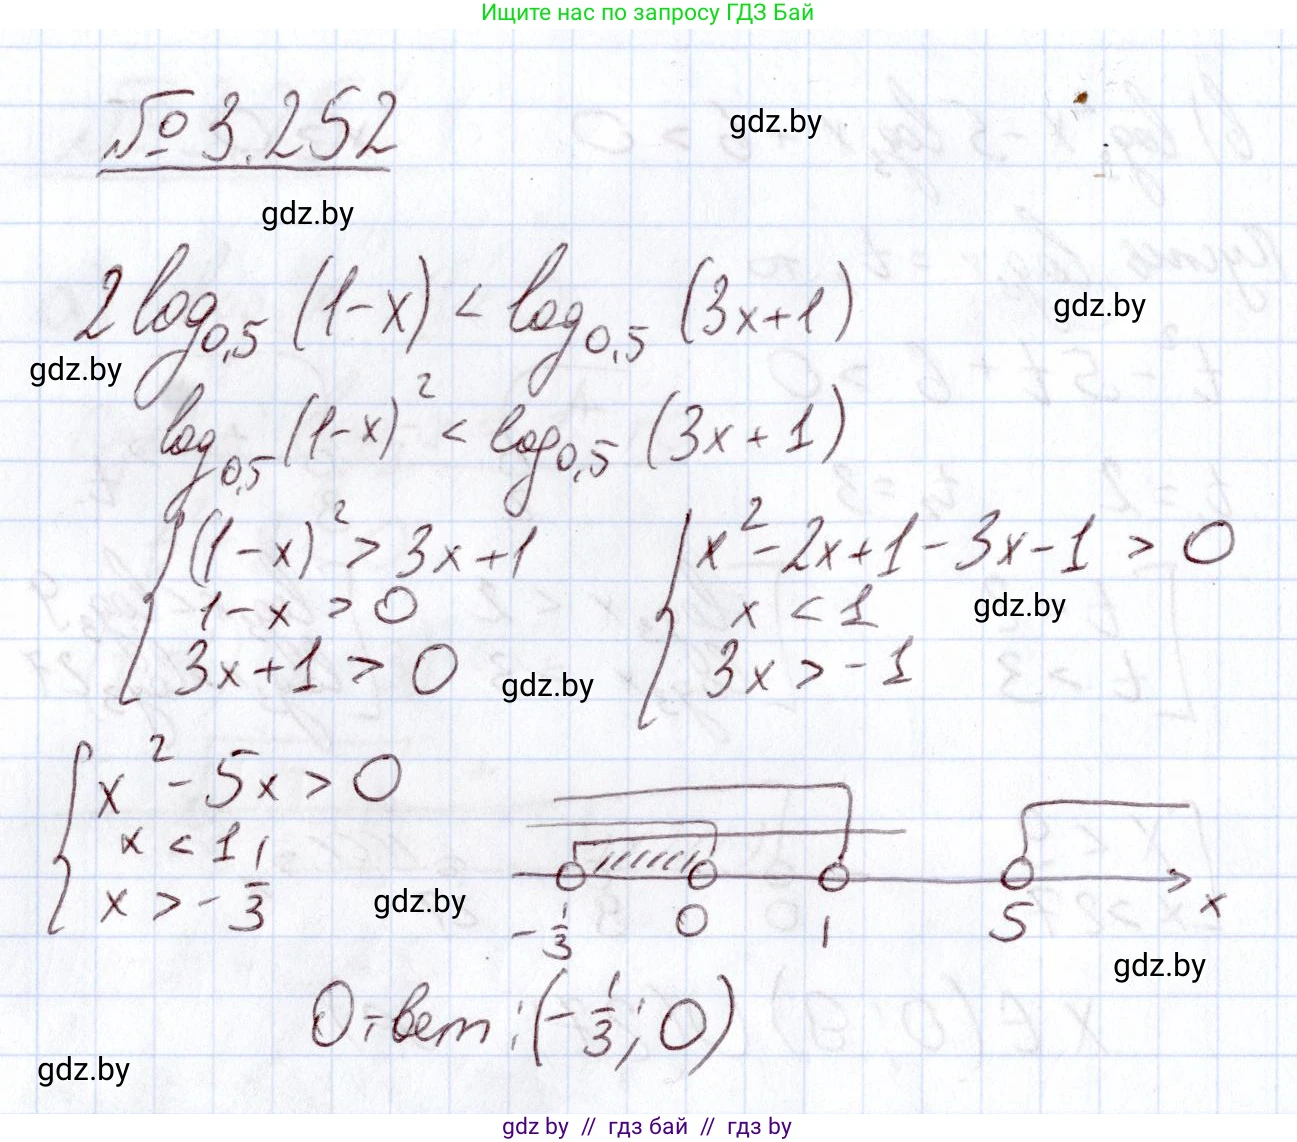 Ищите нас по запросу ГДЗ Бай
№ 3.252
gdz.by
gdz.by
2log₀,₅ (1-x) < log₀,₅ (3x+1)
gdz.by
gdz.by
log₀,₅ (1-x)² < log₀,₅ (3x+1)
{ (1-x)² > 3x+1
1-x > 0
3x+1 > 0
{ x²-2x+1-3x-1 > 0
x < 1
3x > -1
gdz.by
gdz.by
{ x² - 5x > 0
x < 1
x > -1/3
gdz.by
-1/3 0 1 5 x
gdz.by
Ответ: (-1/3; 0)
gdz.by
gdz by // гдз бай // гдз by